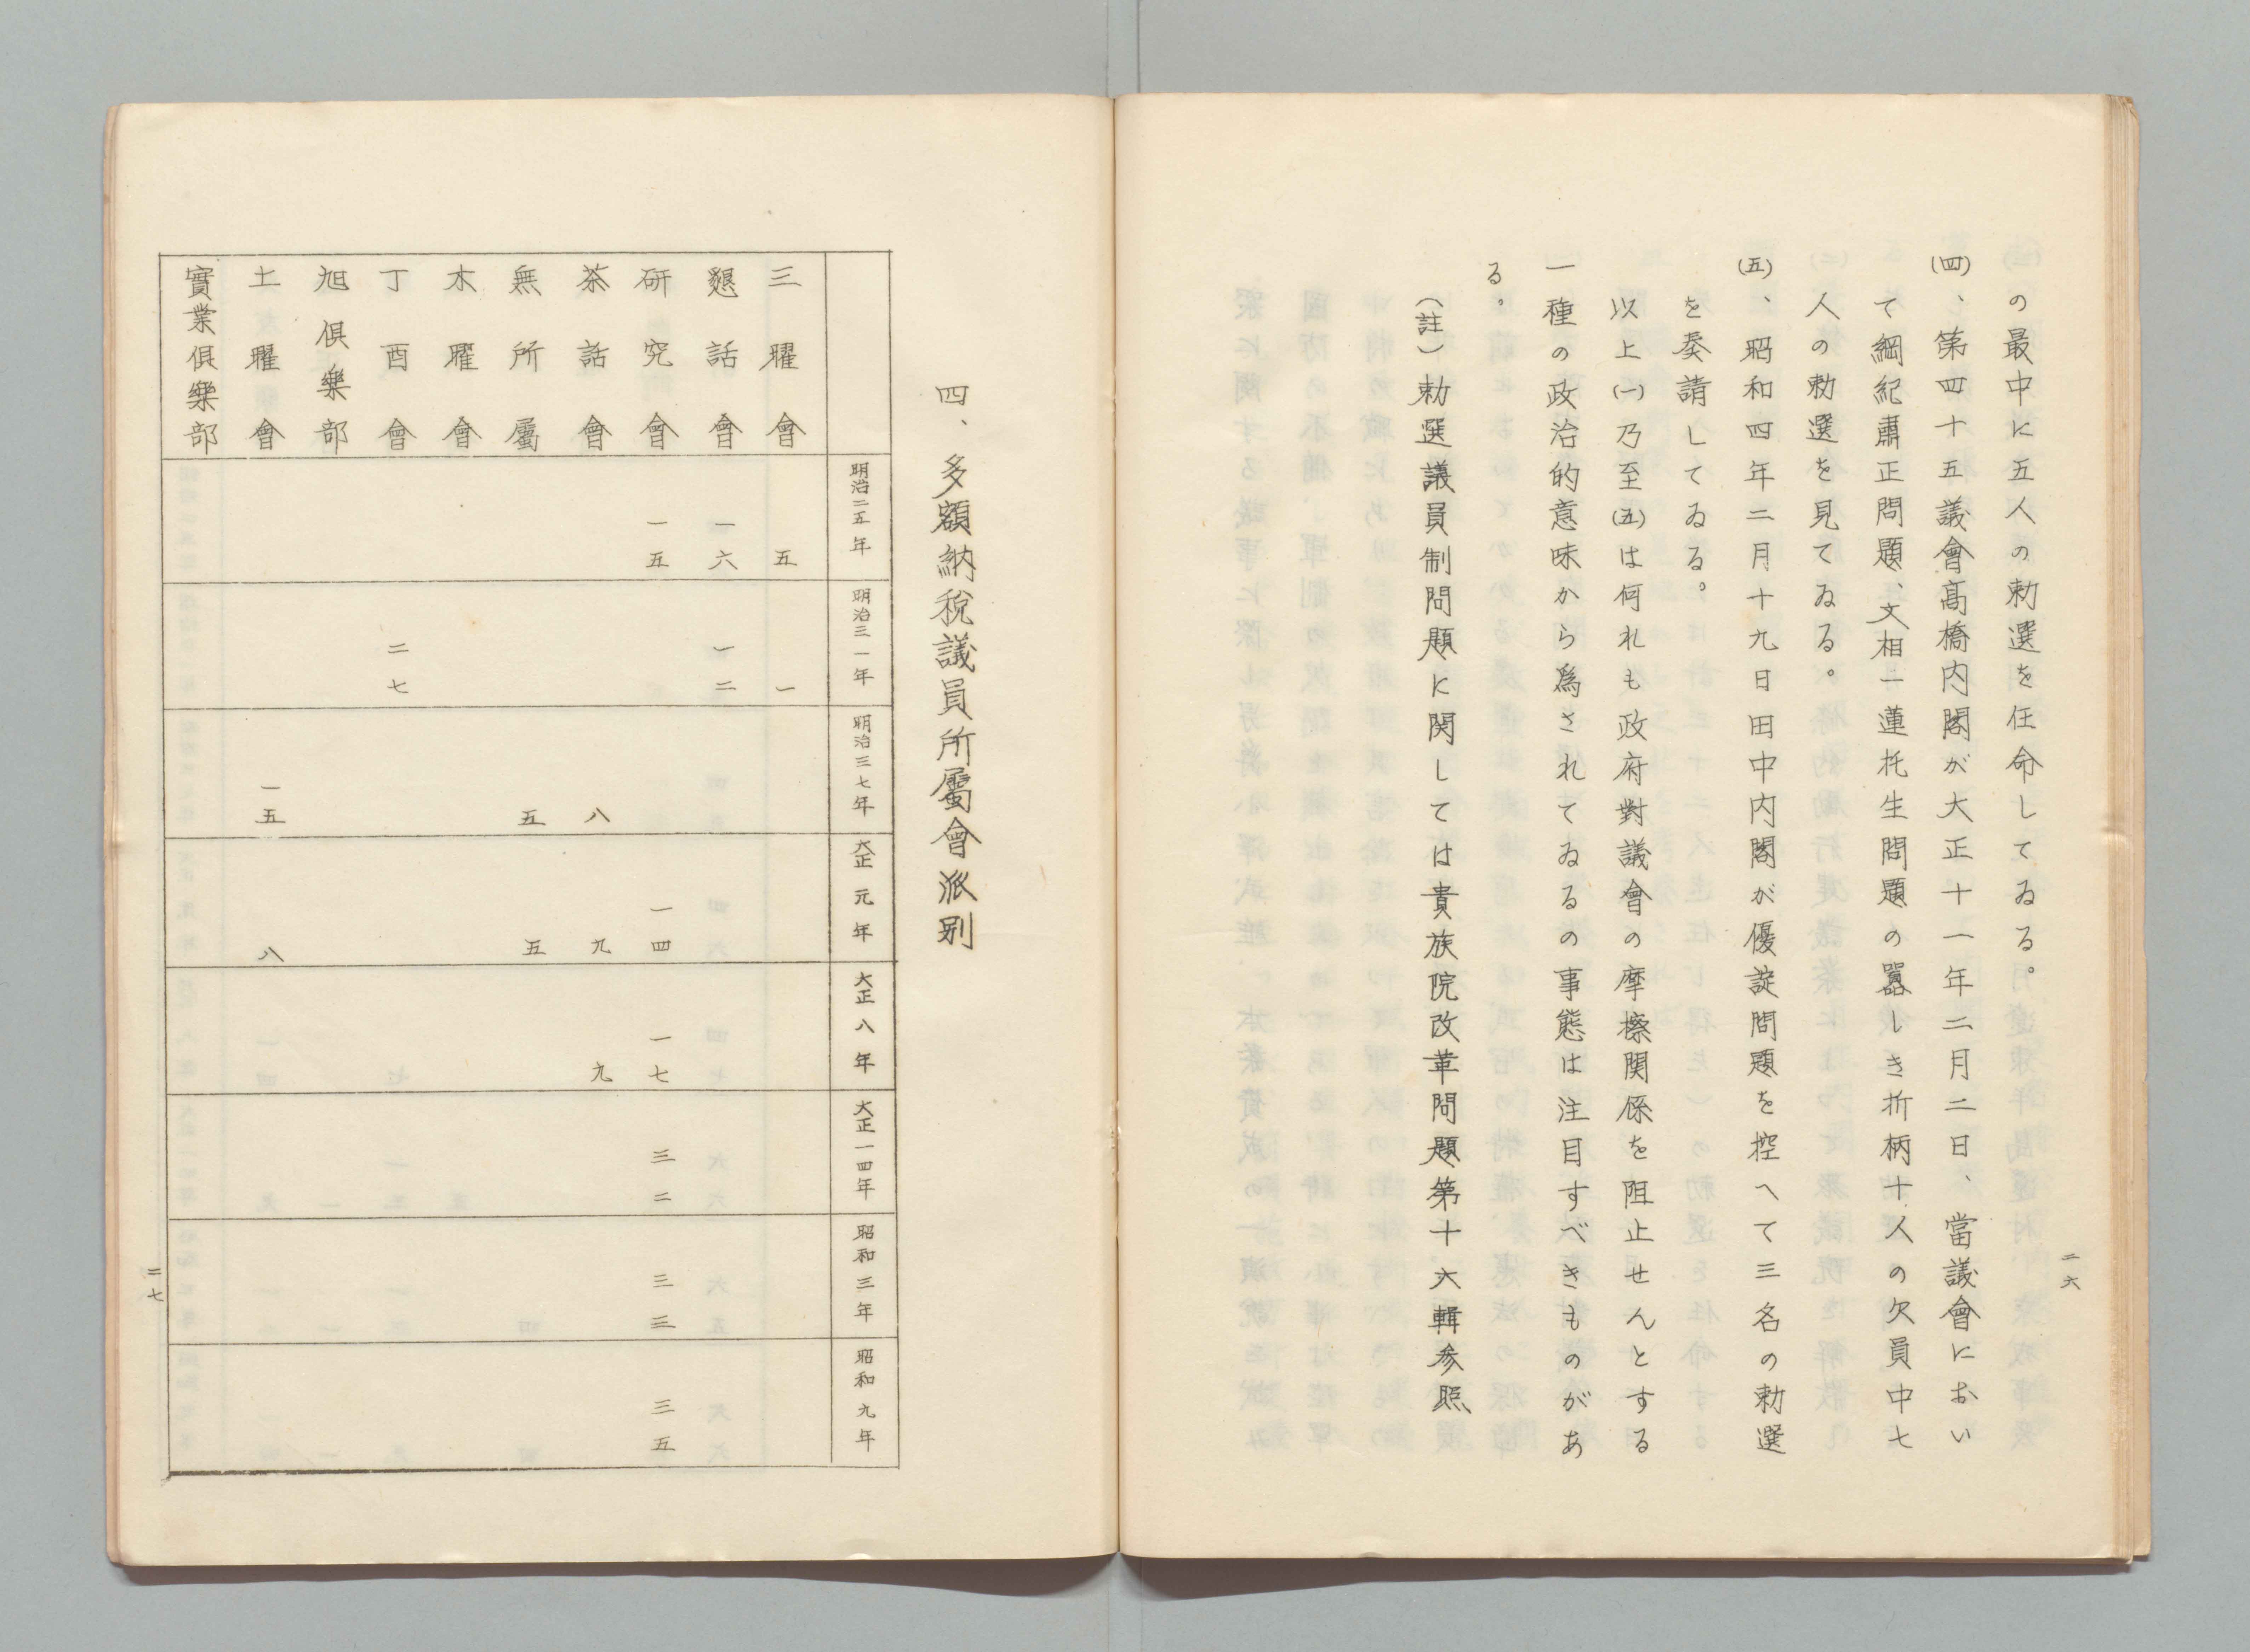 二六
の最中に五人の勅選を任命してゐる。
(四)、第四十五議會高橋内閣が大正十一年二月二日、當議會におい
て綱紀肅正問題、文相一蓮托生問題の囂しき折柄十人の欠員中七
人の勅選を見てゐる。
(五)、昭和四年二月十九日田中内閣が優諚問題を控へて三名の勅選
を奏請してゐる。
以上(一)乃至(五)は何れも政府對議會の摩擦関係を阻止せんとする
一種の政治的意味から爲されてゐるの事態は注目すべきものがあ
る。
(註)勅選議員制問題に関しては貴族院改革問題第十六輯参照、
四、多額納税議員所屬會派別
明治二五年 明治三一年 明治三七年 大正元年 大正八年 大正一四年 昭和三年 昭和九年
三曜會 五 一
懇話會 一六 一二
研究會 一五 一四 一七 三二 三三 三五
茶話會 八 九 九
無所屬 五 五
木曜會
丁酉會 二七
旭倶樂部
土曜會 一五 八
實業倶樂部
二七